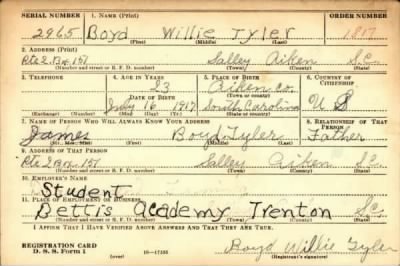 SERIAL NUMBER 1. NAME (Print) ORDER NUMBER
2965 Boyd Willie Tyler 1817
(First) (Middle) (Last)
2. ADDRESS (Print)
Rte 2 Bx 157 Salley Aiken S.C.
(Number and street or R. F. D. number) (Town) (County) (State)
3. TELEPHONE 4. AGE IN YEARS 5. PLACE OF BIRTH 6. COUNTRY OF CITIZENSHIP
23 Aiken co.
DATE OF BIRTH (Town or county)
July 16 1917 South Carolina U S
(Exchange) (Number) (Mo.) (Day) (Yr.) (State or country)
7. NAME OF PERSON WHO WILL ALWAYS KNOW YOUR ADDRESS 8. RELATIONSHIP OF THAT PERSON
James Boyd Tyler Father
(Mr., Mrs., Miss) (First) (Middle) (Last)
9. ADDRESS OF THAT PERSON
Rte 2 Bx 157 Salley Aiken S.C.
(Number and street or R. F. D. number) (Town) (County) (State)
10. EMPLOYER'S NAME
Student
11. PLACE OF EMPLOYMENT OR BUSINESS
Bettis Academy Trenton S.C.
(Number and street or R. F. D. number) (Town) (County) (State)
I AFFIRM THAT I HAVE VERIFIED ABOVE ANSWERS AND THAT THEY ARE TRUE.
REGISTRATION CARD
D. S. S. Form 1 (over) 16—17105 Boyd Willie Tyler